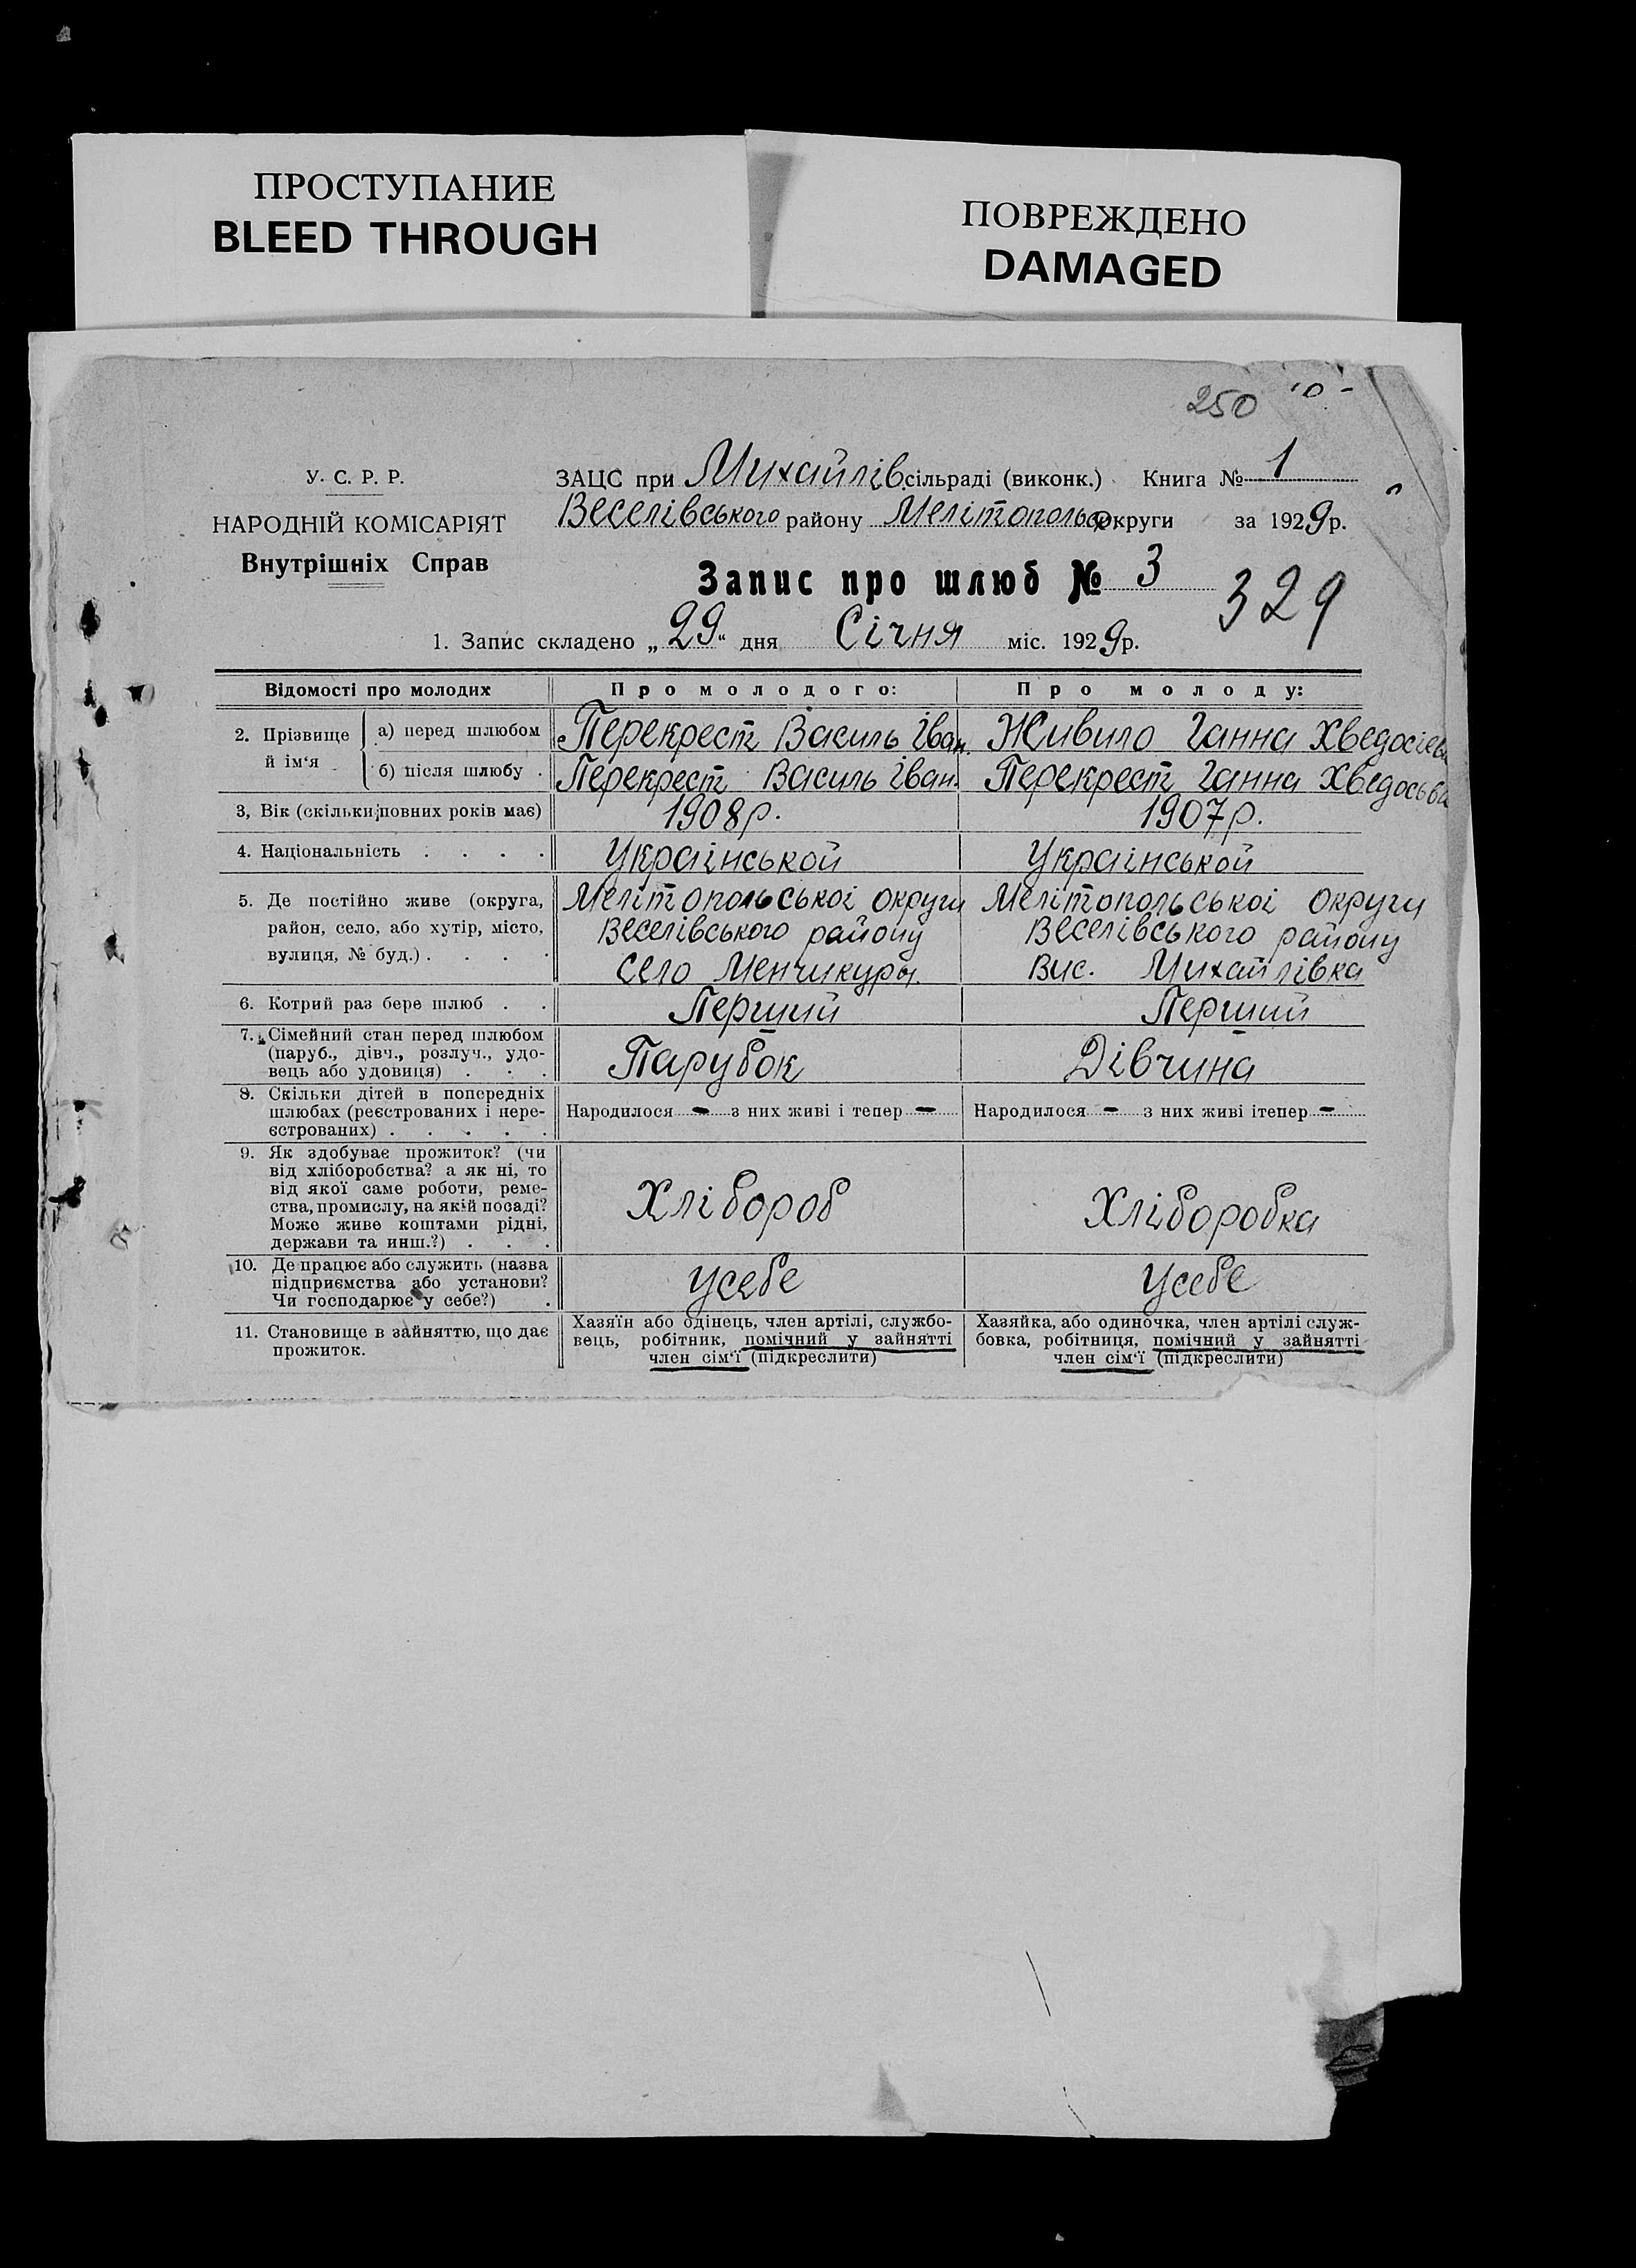 ПРОСТУПАНИЕ
BLEED THROUGH
ПОВРЕЖДЕНО
DAMAGED
250
У. С. Р. Р.
НАРОДНІЙ КОМІСАРІЯТ
Внутрішніх Справ
ЗАЦС при Михайлів. сільраді (виконк.) Книга № 1
Веселівського району Мелітопольс округи за 1929 р.
Запис про шлюб № 3
329
1. Запис складено „29“ дня Січня міс. 1929 р.
Відомості про молодих Про молодого: Про молоду:
2. Прізвище й ім‘я
а) перед шлюбом Перекрест Василь Іван. Живило Ганна Хведосіев
б) після шлюбу . Перекрест Василь Іван. Перекрест Ганна Хведосьев
3, Вік (скільки повних років має) 1908 р. 1907 р.
4. Національність . . . . Украінськой Украінськой
5. Де постійно живе (округа, район, село, або хутір, місто, вулиця, № буд.) . . . .
Мелітопольськоі округи
Веселівського району
село Менчикуры.
Мелітопольськоі округи
Веселівського району
Вис. Михайлівка
6. Котрий раз бере шлюб . . Перший Перший
7. Сімейний стан перед шлюбом
(паруб., дівч., розлуч., удо-
вець або удовиця) . . . Парубок Дівчина
8. Скільки дітей в попередніх
шлюбах (реєстрованих і нере-
єстрованих) . . . . .
Народилося - з них живі і тепер - Народилося - з них живі ітепер -
9. Як здобуває прожиток? (чи
від хліборобства? а як ні, то
від якої саме роботи, реме-
ства, промислу, на якій посаді?
Може живе коштами рідні,
держави та инш.?) . . .
Хлібороб Хліборобка
10. Де працює або служить (назва
підприємства або установи?
Чи господарює у себе?) .
Усебе Усебе
11. Становище в зайняттю, що дає
прожиток.
Хазяїн або одінець, член артілі, службо-
вець, робітник, помічний у зайнятті
член сім‘ї (підкреслити)
Хазяйка, або одиночка, член артілі служ-
бовка, робітниця, помічний у зайнятті
член сім‘ї (підкреслити)